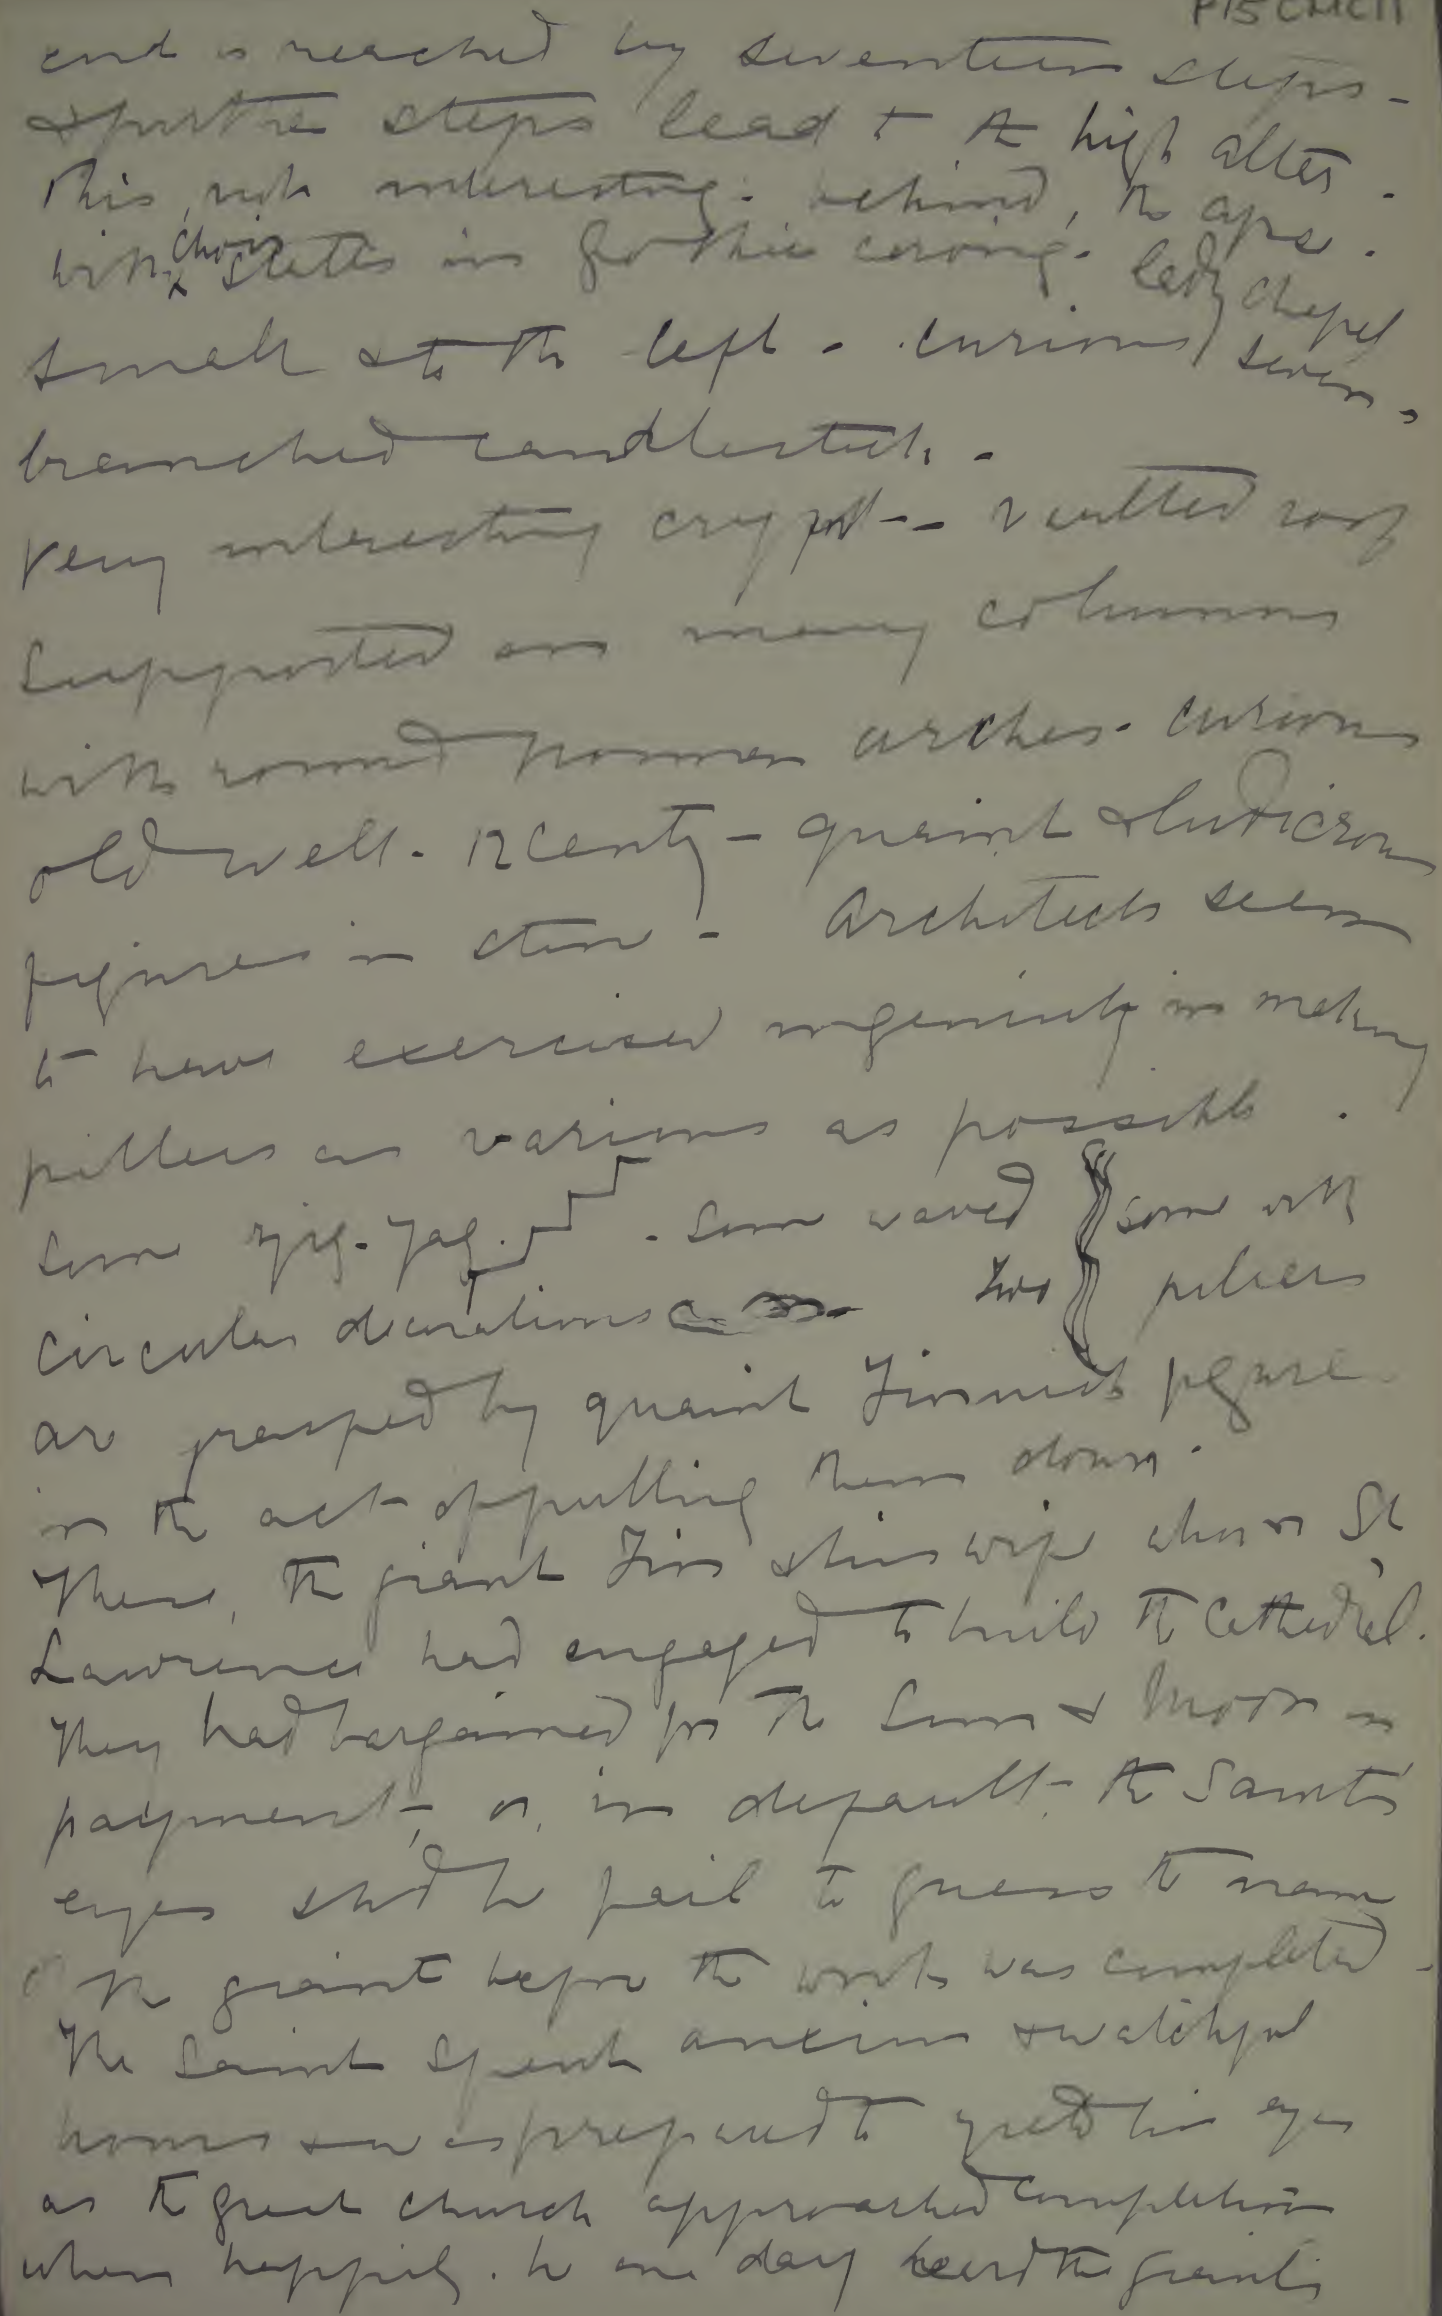 P15CMC11
end is reached by seventeen steps -
& further steps lead to the high alter.
This, not interesting. behind, the apse.
with choir stalls in Gothic carving. Lady chapel
small & to the left - curious seven-
branched candlestick. -
Very interesting crypt - - vaulted roof
supported on many columns
with round Norman arches - curious
old well. 12 Centy - quaint & ludicrous
figures in stone - Architects seem
to have exercised ingenuity in making
pillars as various as possible.
Some zig-zag. - some waved some with
circular decorations two pillars
are grasped by quaint Finnish figures
in the act of pulling them down.
These, the giant Finn & his wife whom St
Lawrence had engaged to build the Cathedral.
They had bargained for the Sun & Moon in
payment, or, in default, the Saint's
eyes shd he fail to guess the name
of the giant before the work was completed -
The Saint spent anxious & watchful
hours & was prepared to yield his eyes
as the great church approached completion
when happily. he one day heard the giant's